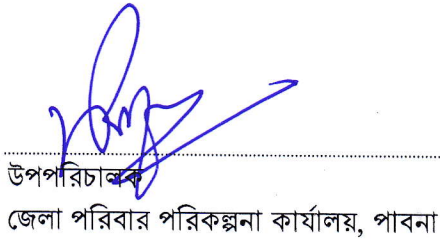 উপপরিচালক
জেলা পরিবার পরিকল্পনা কার্যালয়, পাবনা